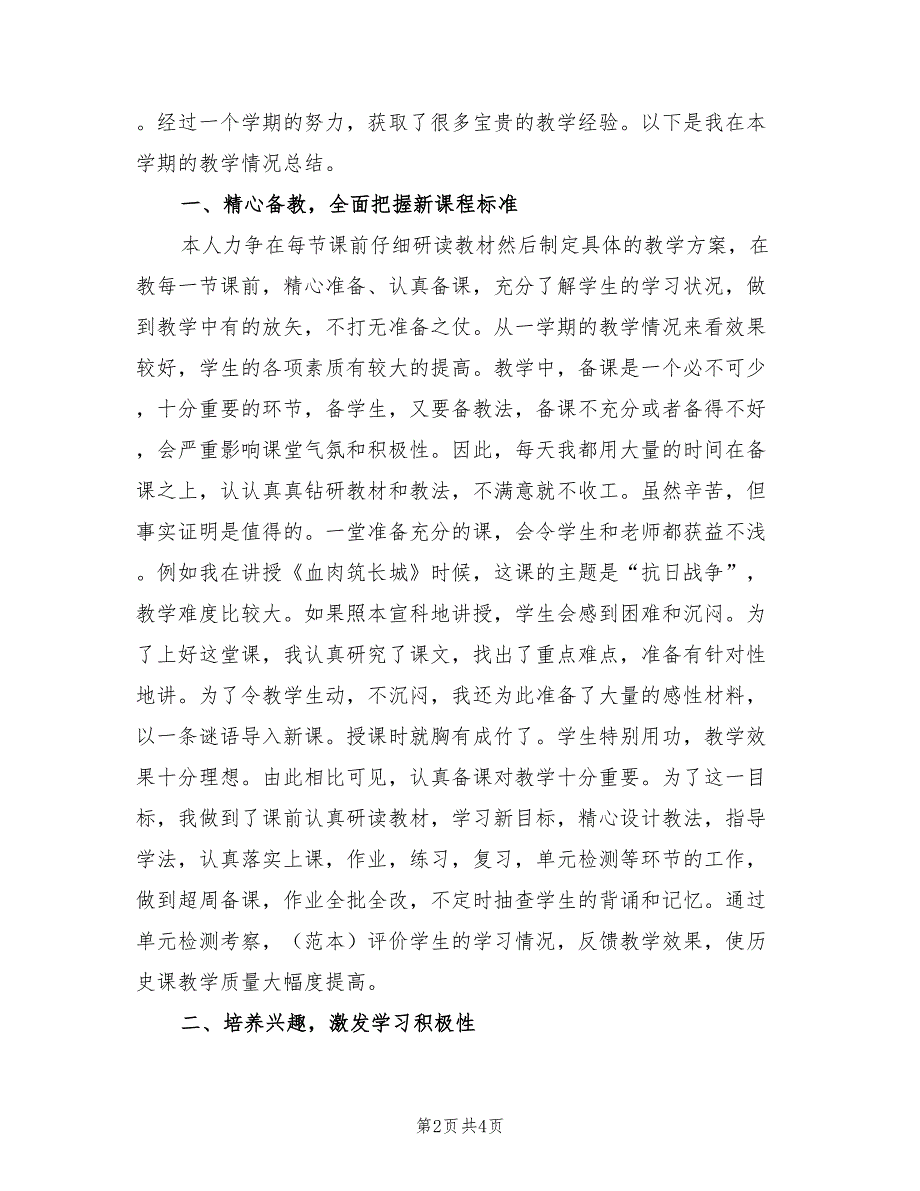 。经过一个学期的努力，获取了很多宝贵的教学经验。以下是我在本
学期的教学情况总结。
一、精心备教，全面把握新课程标准
本人力争在每节课前仔细研读教材然后制定具体的教学方案，在
教每一节课前，精心准备、认真备课，充分了解学生的学习状况，做
到教学中有的放矢，不打无准备之仗。从一学期的教学情况来看效果
较好，学生的各项素质有较大的提高。教学中，备课是一个必不可少
，十分重要的环节，备学生，又要备教法，备课不充分或者备得不好
，会严重影响课堂气氛和积极性。因此，每天我都用大量的时间在备
课之上，认认真真钻研教材和教法，不满意就不收工。虽然辛苦，但
事实证明是值得的。一堂准备充分的课，会令学生和老师都获益不浅
。例如我在讲授《血肉筑长城》时候，这课的主题是“抗日战争”，
教学难度比较大。如果照本宣科地讲授，学生会感到困难和沉闷。为
了上好这堂课，我认真研究了课文，找出了重点难点，准备有针对性
地讲。为了令教学生动，不沉闷，我还为此准备了大量的感性材料，
以一条谜语导入新课。授课时就胸有成竹了。学生特别用功，教学效
果十分理想。由此相比可见，认真备课对教学十分重要。为了这一目
标，我做到了课前认真研读教材，学习新目标，精心设计教法，指导
学法，认真落实上课，作业，练习，复习，单元检测等环节的工作，
做到超周备课，作业全批全改，不定时抽查学生的背诵和记忆。通过
单元检测考察，（范本）评价学生的学习情况，反馈教学效果，使历
史课教学质量大幅度提高。
二、培养兴趣，激发学习积极性
第2页 共4页